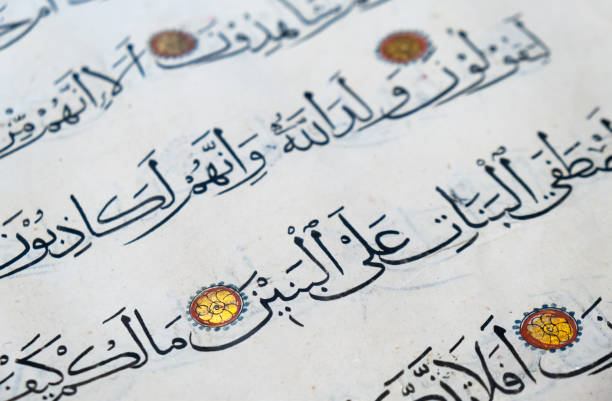 شَاهِدُونَ اَلَا اِنَّهُمْ مِنْ
لَيَقُولُونَ وَلَدَ اللَّهُ وَاِنَّهُمْ لَكَاذِبُوْنَ
اَصْطَفَى الْبَنَاتِ عَلَى الْبَنِيْنَ مَالَكُمْ كَيْفَ
اَفَلَا